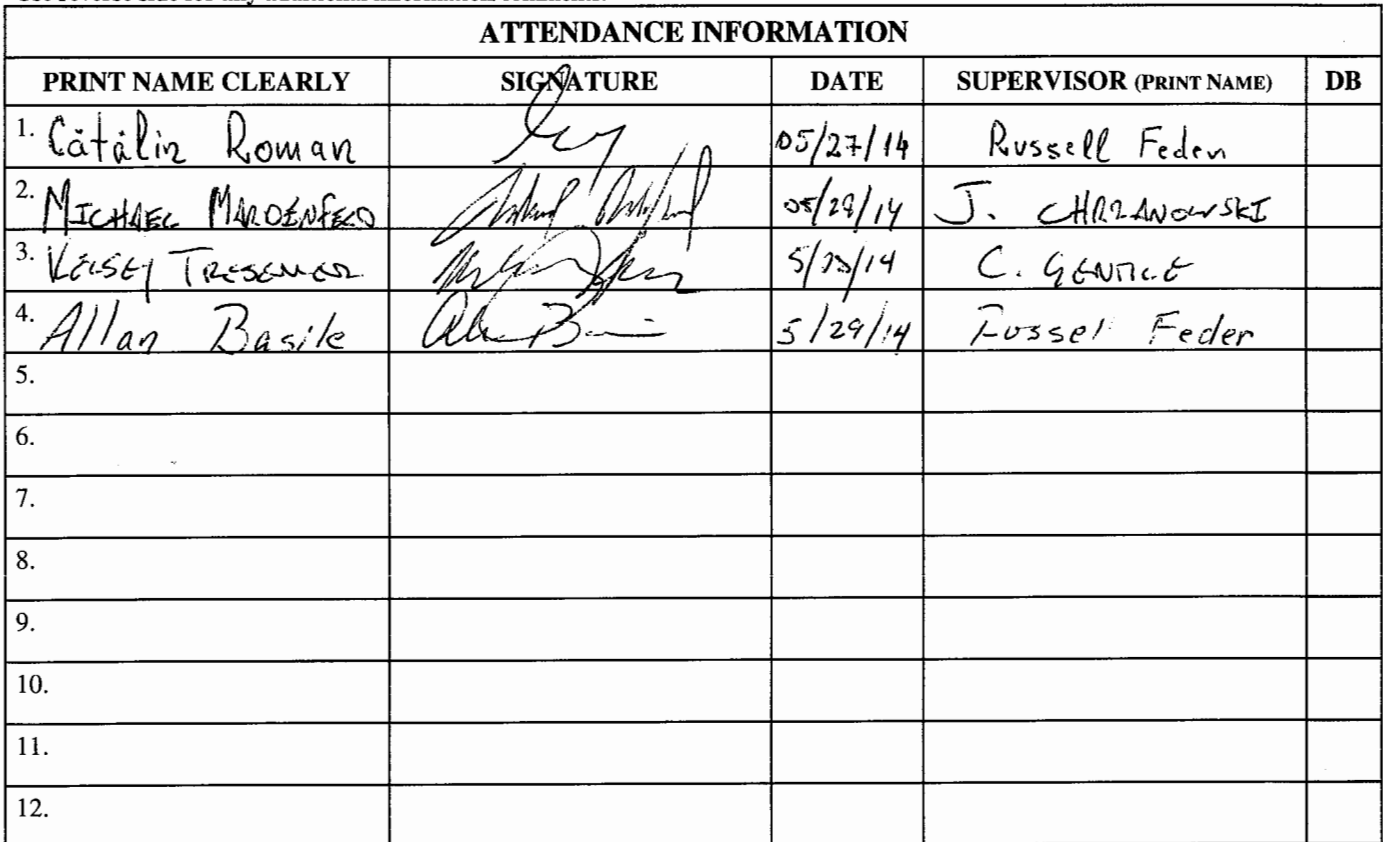 ATTENDANCE INFORMATION
PRINT NAME CLEARLY SIGNATURE DATE SUPERVISOR (PRINT NAME) DB
1. Cătălin Roman 05/27/14 Russell Feder
2. MICHAEL MARDENFELD 05/29/14 J. CHRZANOWSKI
3. KELSEY TRESEMER C. GENTILE
4. Allan Basile 5/29/14 Russel Feder
5.
6.
7.
8.
9.
10.
11.
12.